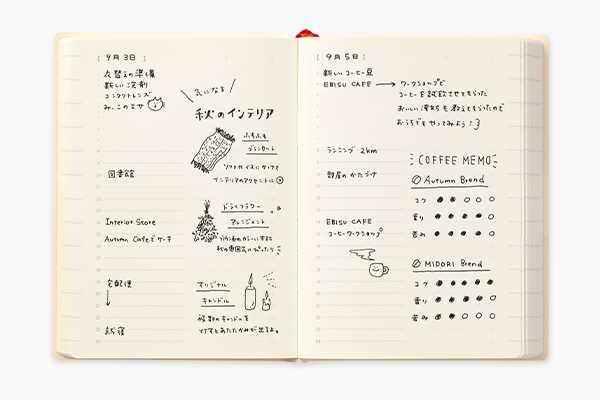 [ 9月3日 ]
衣替えの準備
新しい洗剤
コンタクトレンズ
みーこのエサ
図書館
Interior Store
Autumn Cafeでケーキ
宅配便
新宿
気になる
秋のインテリア
ふちふち
ブランケット
ソファやイスにかけて
インテリアのアクセントに
ドライフラワー
アレンジメント
ブラウン系のカラーにすると
秋の雰囲気にぴったり
オリジナル
キャンドル
複数のキャンドルを
灯すとあたたかみが出るよ。
[ 9月5日 ]
新しいコーヒー豆
EBISU CAFE → ワークショップで
コーヒーを試飲させてもらった
おいしい淹れ方も教えてもらったので
おうちでもやってみよう!
ランニング 2km
部屋のかたづけ
EBISU CAFE
コーヒーワークショップ
COFFEE MEMO
Autumn Brend
コク
香り
苦み
MIDORI Brend
コク
香り
苦み